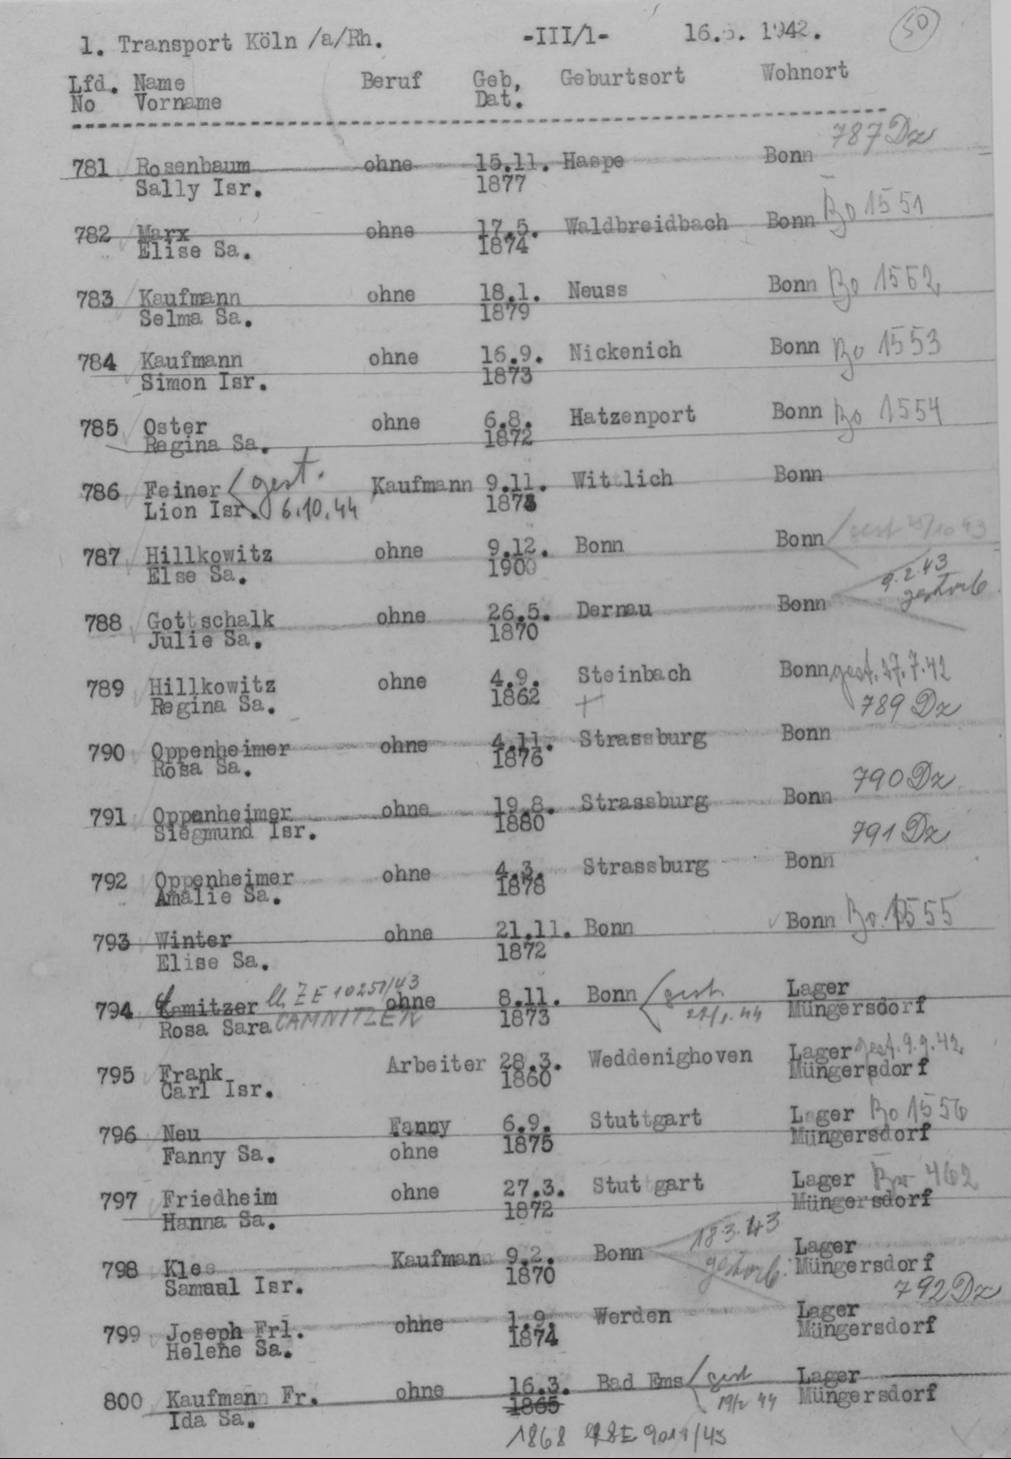 50
1. Transport Köln /a/Rh. -III/1- 16.6. 1942.
Lfd. Name Beruf Geb, Geburtsort Wohnort
No Vorname Dat.
787 Dz
781 Rosenbaum ohne 15.11. Haspe Bonn
Sally Isr. 1877
782 Marx ohne 17.5. Waldbreidbach Bonn Bo 1551
Elise Sa. 1874
783 Kaufmann ohne 18.1. Neuss Bonn Bo 1552
Selma Sa. 1879
784 Kaufmann ohne 16.9. Nickenich Bonn Bo 1553
Simon Isr. 1873
785 Oster ohne 6.8. Hatzenport Bonn Bo 1554
Regina Sa. 1872
786 Feiner gest. Kaufmann 9.11. Wittlich Bonn
Lion Isr. 6.10.44
787 Hillkowitz ohne 9.12. Bonn Bonn gest
Else Sa. 1900
9.2.43
788 Gottschalk ohne 26.5. Dernau Bonn gestorb
Julie Sa. 1870
789 Hillkowitz ohne 4.9. Steinbach Bonn gest. 27.7.42
Regina Sa. 1862 +
789 Dz
790 Oppenheimer ohne 4.11. Strassburg Bonn
Rosa Sa. 1876
790 Dz
791 Oppenheimer ohne 19.8. Strassburg Bonn
Siegmund Isr. 1880
791 Dz
792 Oppenheimer ohne 4.3. Strassburg Bonn
Amalie Sa. 1878
793 Winter ohne 21.11. Bonn Bonn Bo. 1555
Elise Sa. 1872
794 Kamitzer ZE 10251/43 ohne 8.11. Bonn gest Lager
Rosa Sara CAMNITZER 1873 Müngersdorf
795 Frank Arbeiter 28.3. Weddenighoven Lager gest. 9.9.42
Carl Isr. 1860 Müngersdorf
796 Neu Fanny 6.9. Stuttgart Lager Bo 1556
Fanny Sa. ohne 1875 Müngersdorf
797 Friedheim ohne 27.3. Stuttgart Lager 462
Hanna Sa. 1872 Müngersdorf
18.3.43
798 Klee Kaufmann 9.2. Bonn gestorb. Lager
Samuel Isr. 1870 Müngersdorf
792 Dz
799 Joseph Frl. ohne 1.9. Werden Lager
Helene Sa. 1874 Müngersdorf
800 Kaufmann Fr. ohne 16.3. Bad Ems gest Lager
Ida Sa. 1865 19/2 44 Müngersdorf
1868